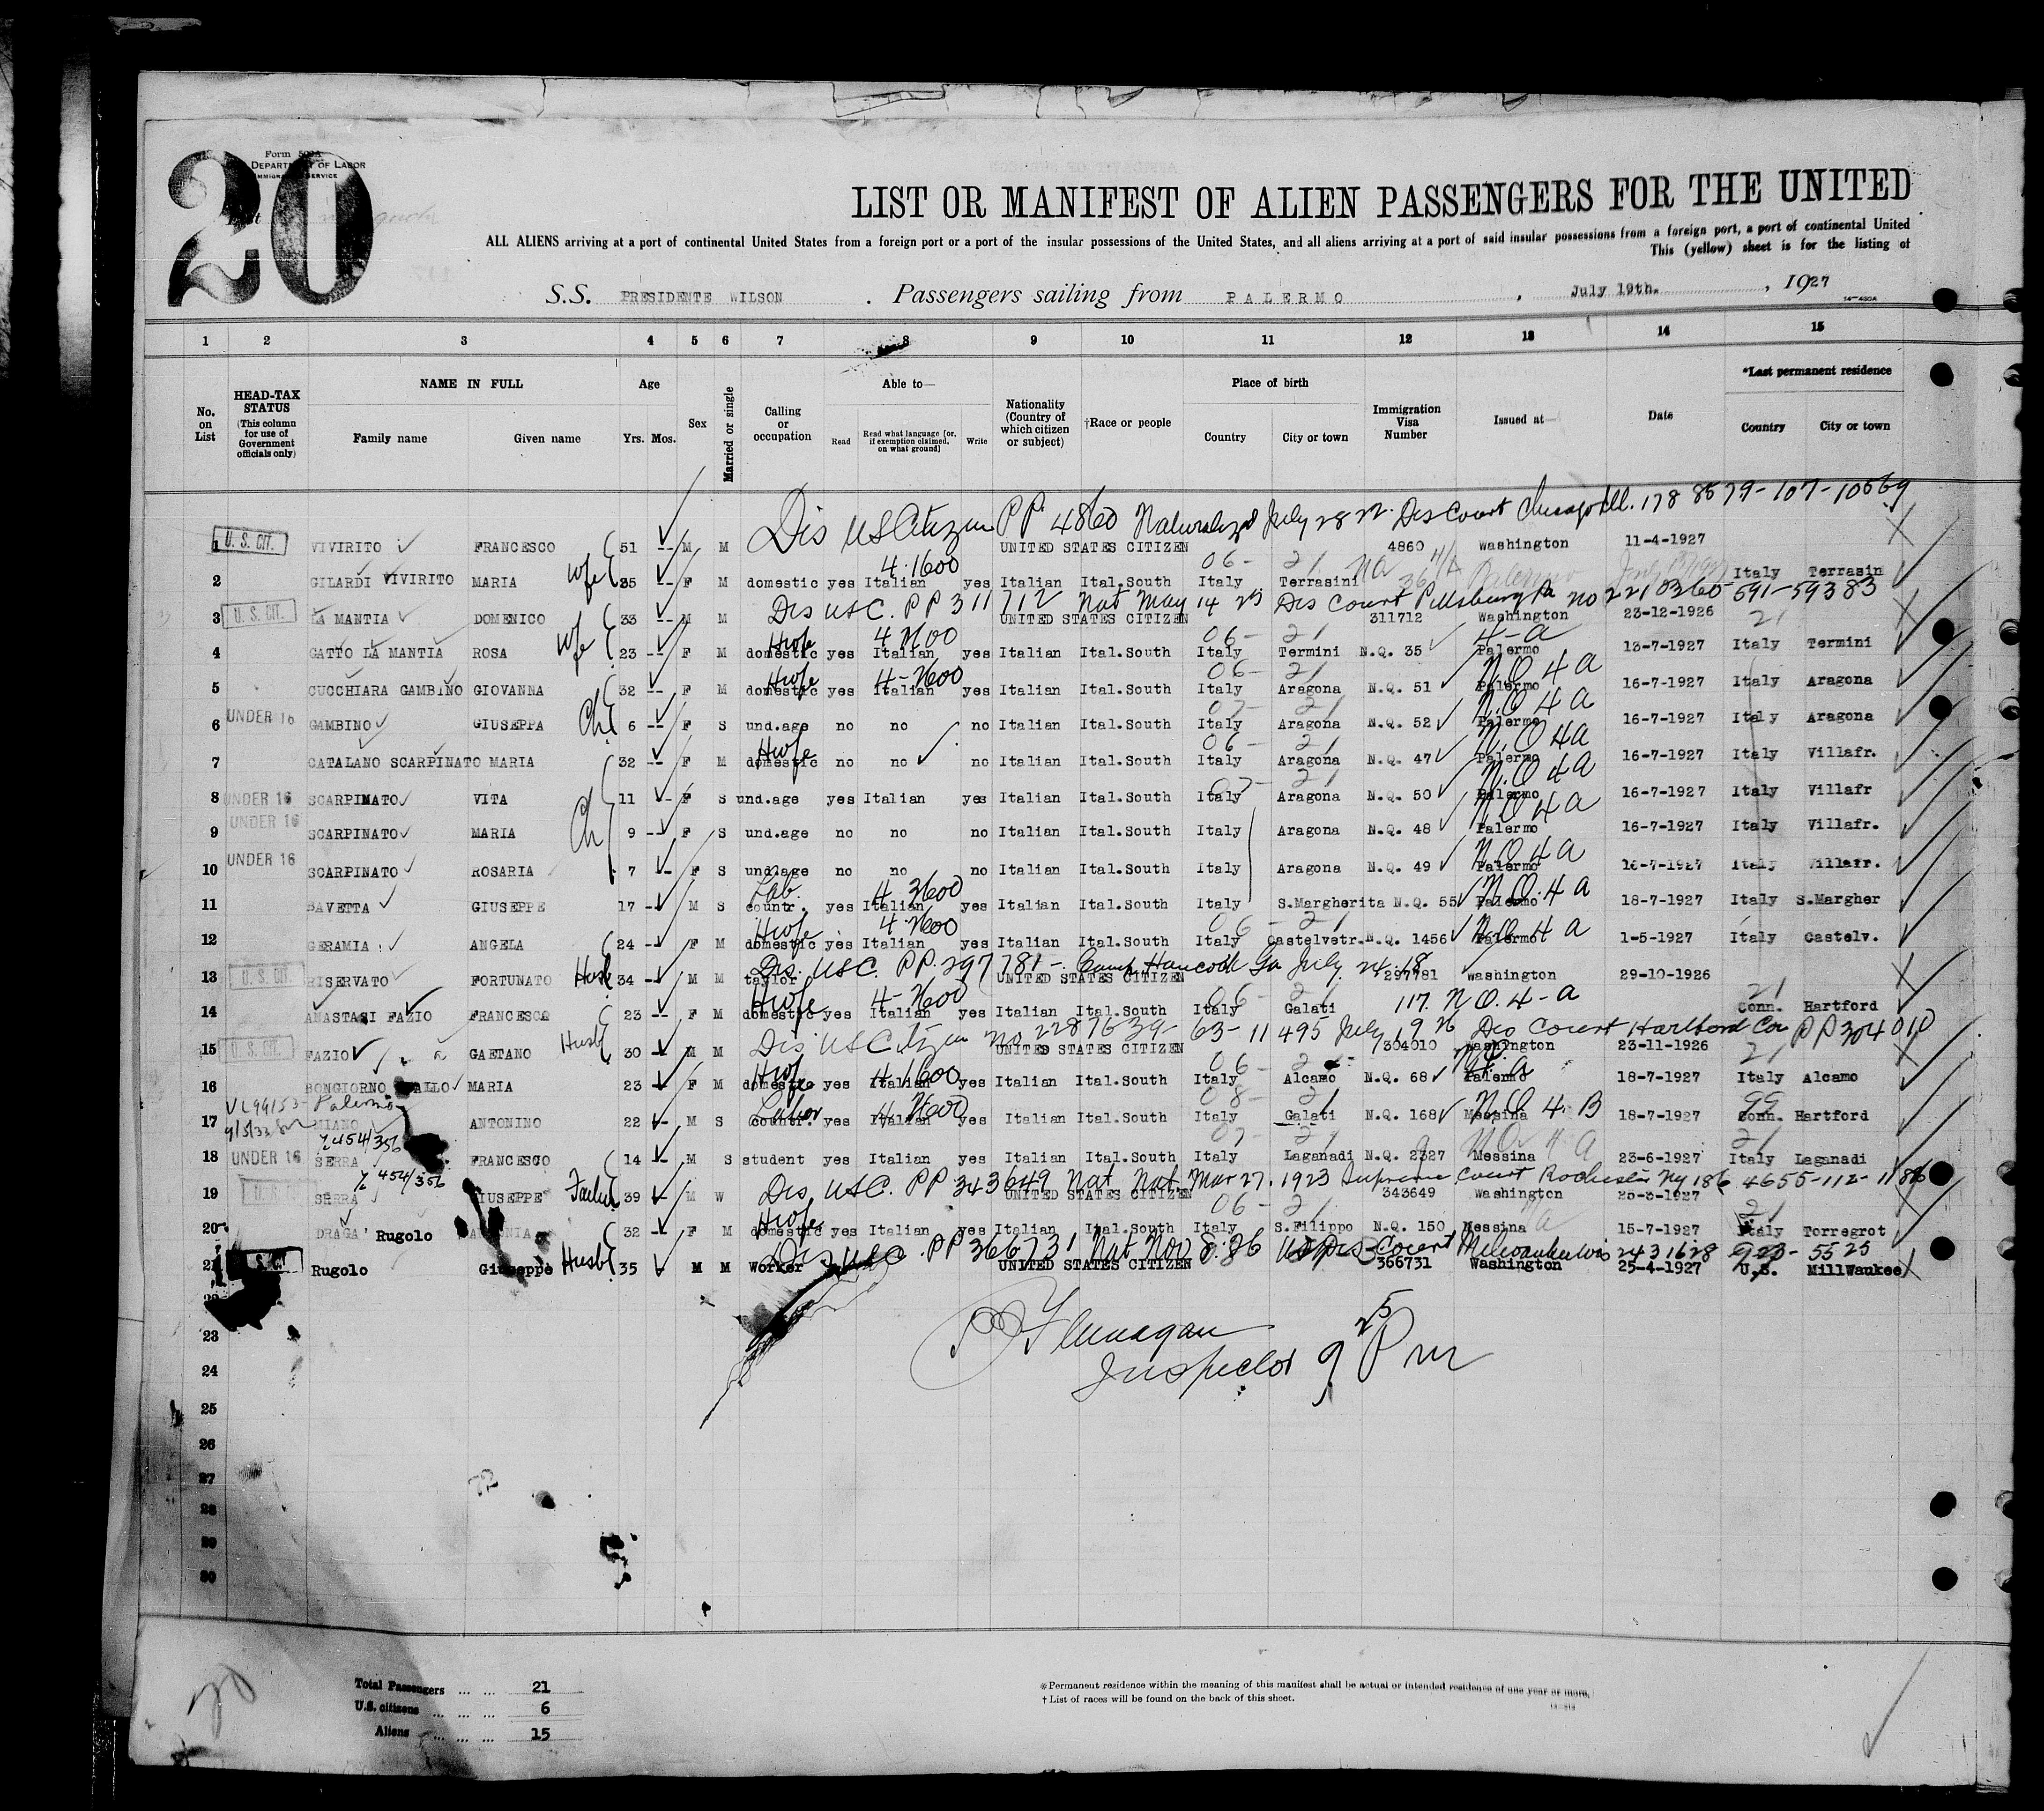 20
Form 500A
DEPARTMENT OF LABOR
IMMIGRATION SERVICE
LIST OR MANIFEST OF ALIEN PASSENGERS FOR THE UNITED
ALL ALIENS arriving at a port of continental United States from a foreign port or a port of the insular possessions of the United States, and all aliens arriving at a port of said insular possessions from a foreign port, a port of continental United
This (yellow) sheet is for the listing of
S.S. PRESIDENTE WILSON . Passengers sailing from PALERMO , July 19th. , 1927
1 2 3 4 5 6 7 8 9 10 11 12 13 14 15
No. on List HEAD-TAX STATUS (This column for use of Government officials only) NAME IN FULL Family name Given name Age Yrs. Mos. Sex Married or single Calling or occupation Able to— Read Read what language [or, if exemption claimed, on what ground] Write Nationality (Country of which citizen or subject) †Race or people Place of birth Country City or town Immigration Visa Number Issued at— Date *Last permanent residence Country City or town
Dis US Citizen PP. 4860 Naturalized July 28 Dis Court Chicago Ill.
1 U. S. CIT. VIVIRITO FRANCESCO 51 -- M M UNITED STATES CITIZEN 4860 Washington 11-4-1927
4-1600 06- 21
2 GILARDI VIVIRITO MARIA Wfe 35 F M domestic yes Italian yes Italian Ital.South Italy Terrasini Italy Terrasin
Dis USC. PP 311712 Nat May 14 25 Dis Court Pittsburg Pa
3 U. S. CIT. LA MANTIA DOMENICO 33 -- M M UNITED STATES CITIZEN 311712 Washington 23-12-1926
Hwfe 06- 21 4-a
4 GATTO LA MANTIA ROSA Wfe 23 -- F M domestic yes Italian yes Italian Ital.South Italy Termini N.Q. 35 Palermo 13-7-1927 Italy Termini
Hwfe 06- 21 N.Q 4 a
5 CUCCHIARA GAMBINO GIOVANNA 32 -- F M domestic yes Italian yes Italian Ital.South Italy Aragona N.Q. 51 Palermo 16-7-1927 Italy Aragona
07- 21 N.Q 4 a
6 UNDER 16 GAMBINO GIUSEPPA Ch 6 -- F S und.age no no no Italian Ital.South Italy Aragona N.Q. 52 Palermo 16-7-1927 Italy Aragona
Hwfe 06- 21 N.Q 4a
7 CATALANO SCARPINATO MARIA 32 -- F M domestic no no no Italian Ital.South Italy Aragona N.Q. 47 Palermo 16-7-1927 Italy Villafr.
07- 21 N.Q 4 a
8 UNDER 16 SCARPINATO VITA 11 -- F S und.age yes Italian yes Italian Ital.South Italy Aragona N.Q. 50 Palermo 16-7-1927 Italy Villafr
N.Q 4 a
9 UNDER 16 SCARPINATO MARIA Ch 9 -- F S und.age no no no Italian Ital.South Italy Aragona N.Q. 48 Palermo 16-7-1927 Italy Villafr.
N.Q 4 a
10 UNDER 16 SCARPINATO ROSARIA 7 -- F S und.age no no no Italian Ital.South Italy Aragona N.Q. 49 Palermo 16-7-1927 Italy Villafr.
Lab. N.Q. 4 a
11 BAVETTA GIUSEPPE 17 -- M S countr. yes Italian yes Italian Ital.South Italy S.Margherita N.Q. 55 Palermo 18-7-1927 Italy S.Margher
Hwfe 06- 21 N.Q 4 a
12 GERAMIA ANGELA 24 -- F M domestic yes Italian yes Italian Ital.South Italy Castelvetr. N.Q. 1456 Palermo 1-5-1927 Italy Castelv.
Dis. USC. PP. 297781- Camp Hancock Ga July 24.18
13 U. S. CIT. RISERVATO FORTUNATO Husb 34 -- M M taylor UNITED STATES CITIZEN 297781 Washington 29-10-1926
Hwfe 06- 21 117. N.Q. 4-a 21
14 ANASTASI FAZIO FRANCESCA 23 -- F M domestic yes Italian yes Italian Ital.South Italy Galati Conn. Hartford
Dis US Citizen No 2287639- 63-11495 July 9 26 Dis Court Hartford Con PP 304010
15 U. S. CIT. FAZIO GAETANO Husb 30 -- M M UNITED STATES CITIZEN 304010 Washington 23-11-1926
Hwfe 4-1600 06- 21
16 BONGIORNO MARIA 23 -- F M domestic yes Italian yes Italian Ital.South Italy Alcamo N.Q. 68 Palermo 18-7-1927 Italy Alcamo
Palermo Labor 08- 21 N.Q 4. B 99
17 MIANO ANTONINO 22 -- M S countr. yes Italian yes Italian Ital.South Italy Galati N.Q. 168 Messina 18-7-1927 Conn. Hartford
454/356 07- 21 N.Q 4 a 21
18 UNDER 16 SERRA FRANCESCO 14 -- M S student yes Italian yes Italian Ital.South Italy Laganadi N.Q. 2327 Messina 23-6-1927 Italy Laganadi
454/356 Dis. USC. PP 343649 Nat. Mar 27. 1923 Supreme Court Rochester Ny
19 U. S. CIT. SERRA GIUSEPPE Father 39 -- M W UNITED STATES CITIZEN 343649 Washington
Hwfe 06- 21
20 DRAGA' Rugolo 32 -- F M domestic yes Italian yes Italian Ital.South Italy S.Filippo N.Q. 150 Messina 15-7-1927 Italy Torregrot
Dis USC. PP 366731 Nat Nov US Dis Court Milwaukee Wis 2431628
21 U. S. CIT. Rugolo Giuseppe Husb 35 M M Worker UNITED STATES CITIZEN 366731 Washington 25-4-1927 U.S. MillWaukee
Flannagan
23
Inspector 9 25 Pm
24
25
26
27
28
29
30
Total Passengers ... ... 21
U.S. citizens ... ... ... 6
Aliens ... ... ... 15
20
*Permanent residence within the meaning of this manifest shall be actual or intended residence of one year or more.
† List of races will be found on the back of this sheet.